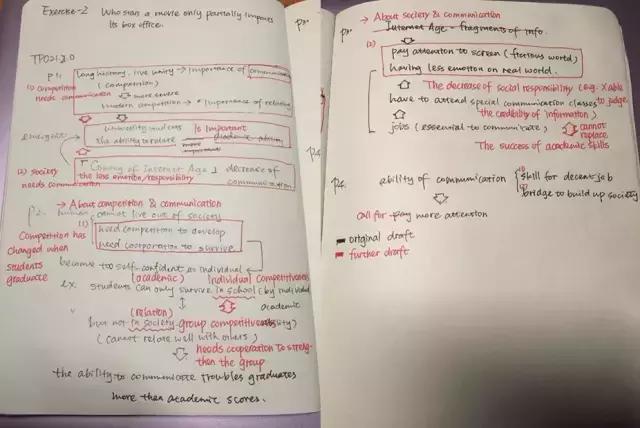 Exercise-2 Who stars a movie only partially impacts
its box office.
TPO21.2.0
P1: Long history, live unity → importance of communication
(1) competition (competition)
needs communication more severe
modern competition → importance of relation
university students Is Important
emergent the ability to relate more academic ability
important
(2) society 「Coming of Internet Age」 decrease of
the less emotion/responsibility
needs communication communication
→ About competition & communication
P2. human cannot live out of society
(1) need competition to develop
Competition has need cooperation to survive
changed when
students become too self-confident as individual
graduate (academic) Individual Competitiveness
ex. students can only survive in school (by individual
(relation) academic
but not in society group competitiveness ability)
(cannot relate well with others)
needs cooperation to streng-
then the group
the ability to communicate troubles graduates
more then academic scores.
P1.
P2
P1. → About society & communication
Internet Age → fragments of info.
(2)
pay attention to screen (fictious world)
having less emotion on real world.
The decrease of social responsibility (eg. Xable
have to attend special communication classes to judge
the credibility of information)
jobs (essential to communicate) cannot
replace
The success of academic skills
P2. ability of communication (1) skill for decent job
(2) bridge to build up society
call for pay more attention
original draft
further draft